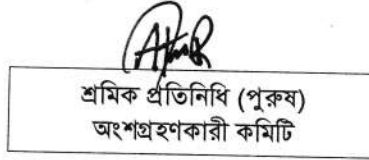 শ্রমিক প্রতিনিধি (পুরুষ)
অংশগ্রহণকারী কমিটি